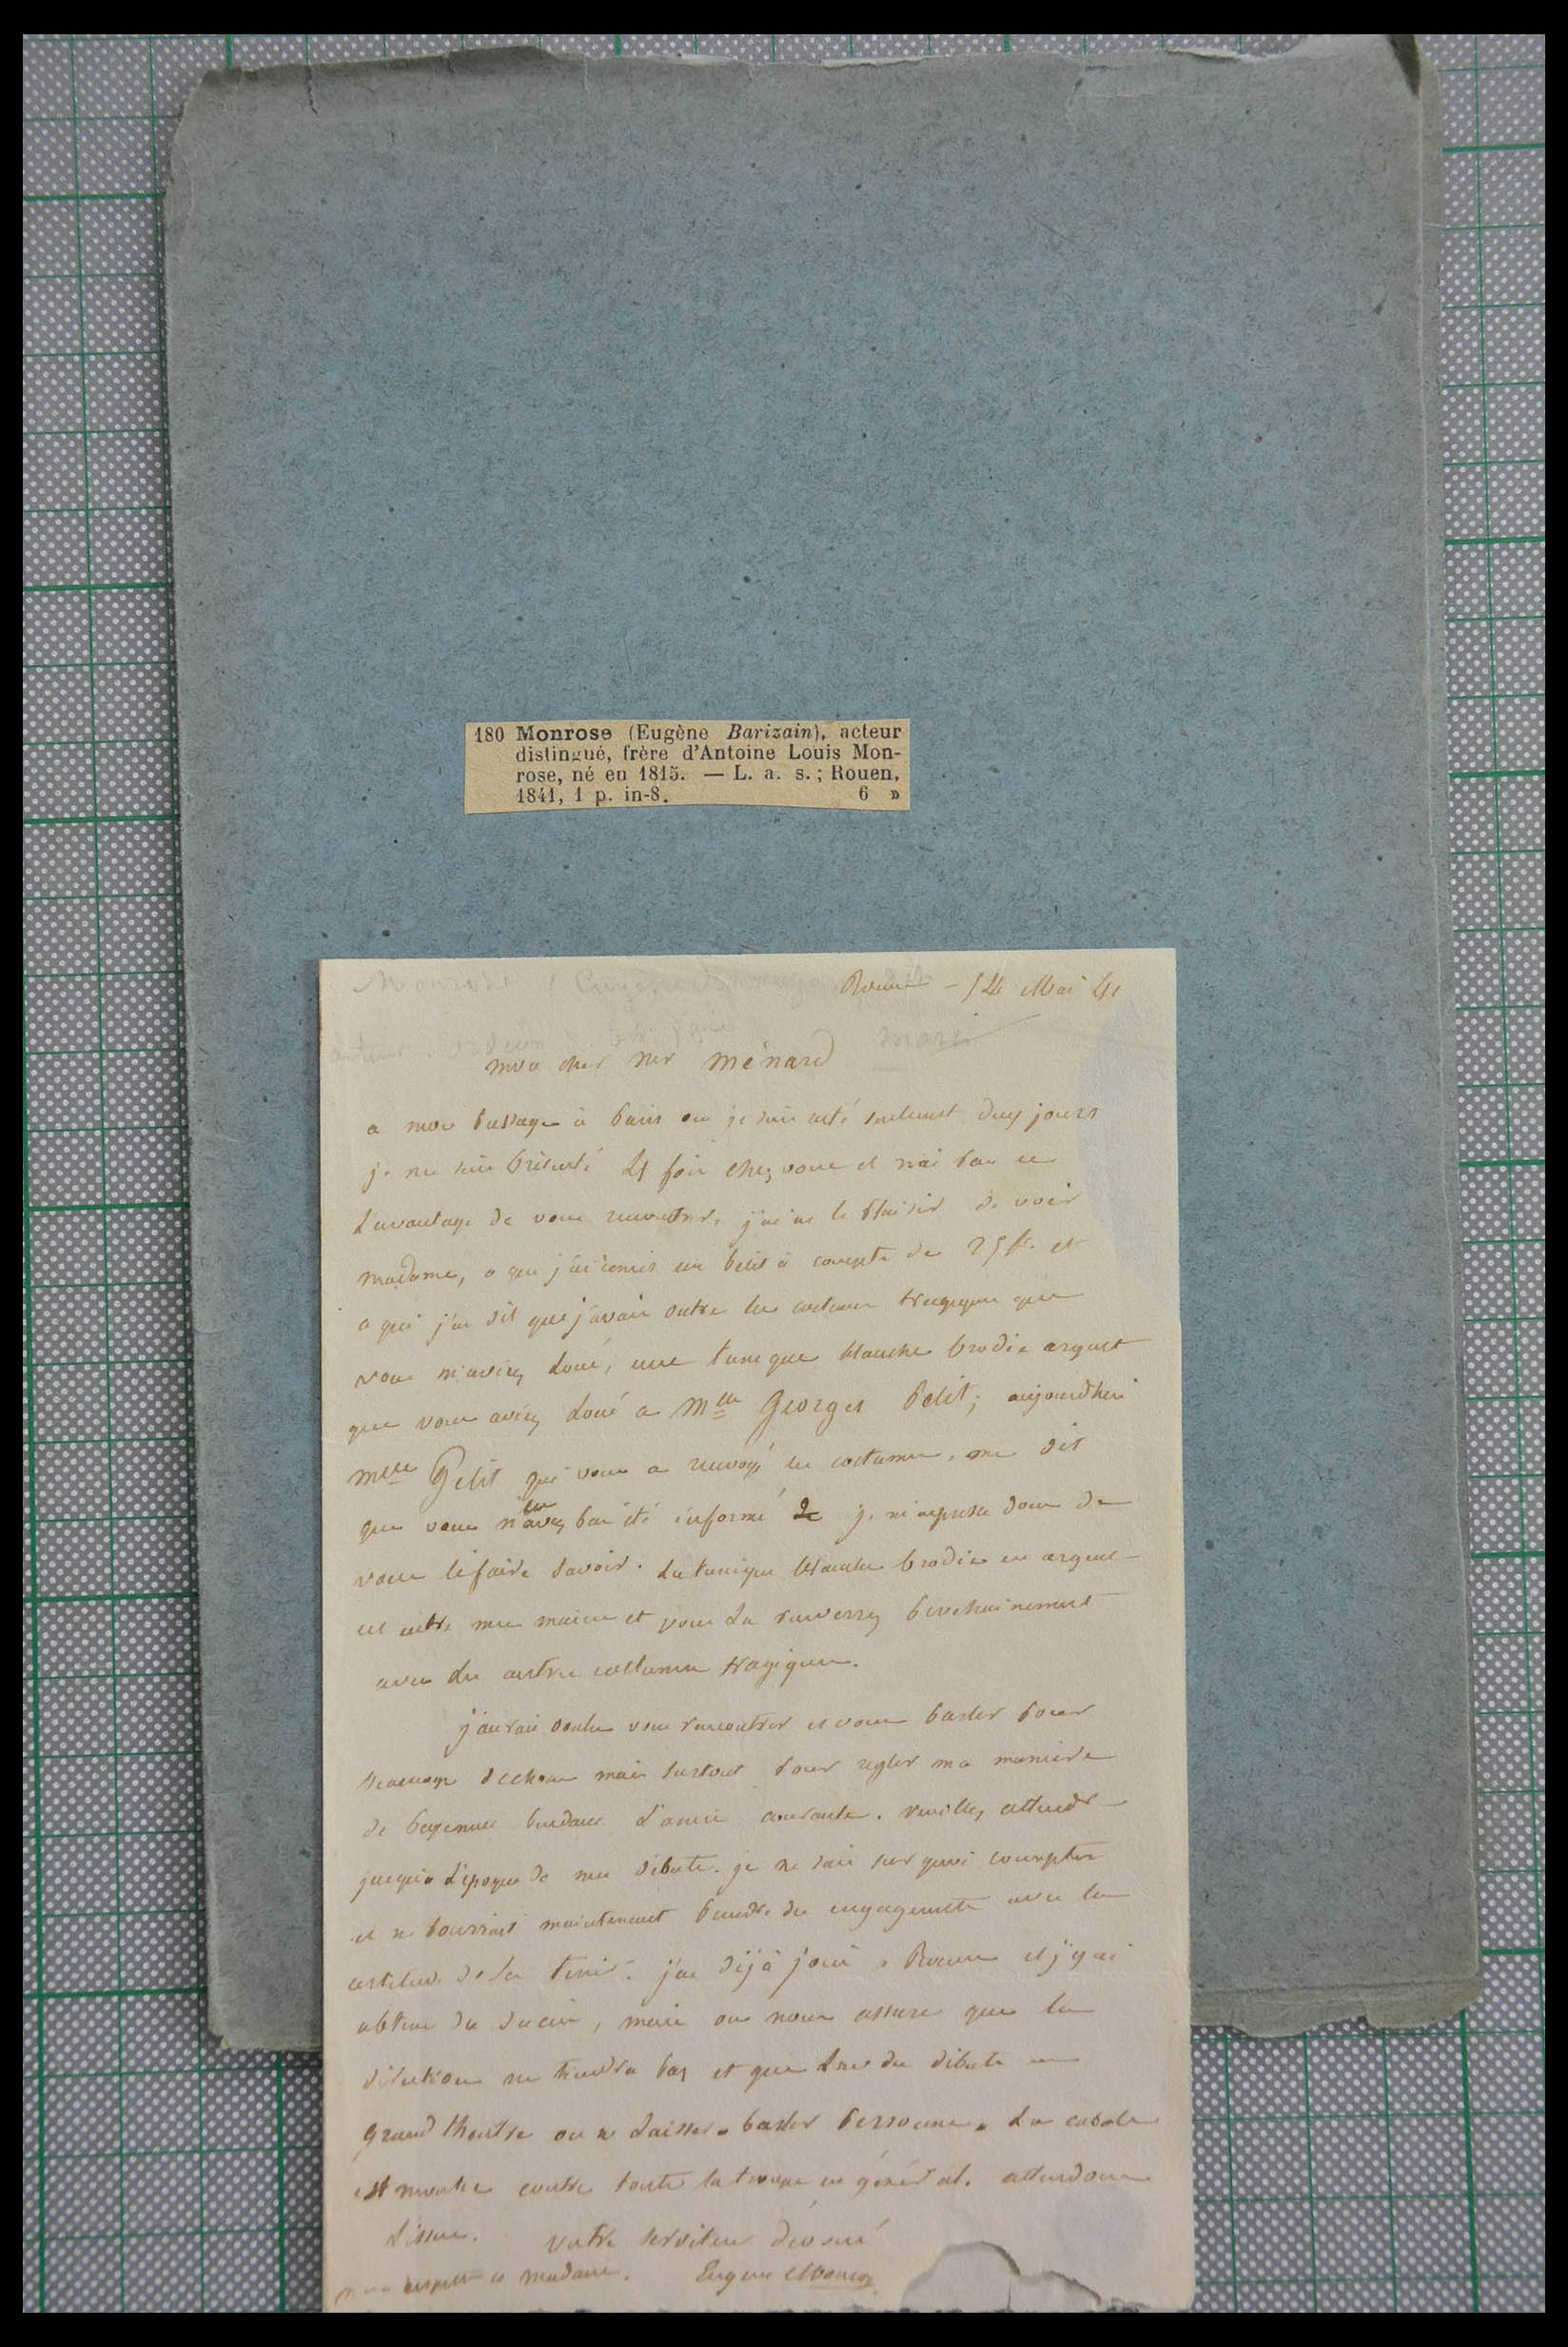 180 Monrose (Eugène Barizain), acteur
distingué, frère d'Antoine Louis Mon-
rose, né en 1815. — L. a. s.; Rouen,
1841, 1 p. in-8. 6 »
Monrose (Eugène
Rouen - 14 Mai 41
mon cher Mr Ménard
a mon passage à Paris ou je suis resté seulement deux jours
je me suis présenté 4 fois chez vous et n'ai pas eu
l'avantage de vous rencontrer. j'ai eu le plaisir de voir
madame, a qui j'ai remis un petit à compte de 25 f. et
a qui j'ai dit que j'avais outre les costumes tragiques que
vous m'aviez loué, une tunique blanche brodée argent
que vous aviez loué a Mlle Georges Petit; aujourd'hui
Mlle Petit qui vous a renvoyé les costumes, me dit
que vous n'en avez pas été informé je m'empresse donc de
vous le faire savoir. La tunique blanche brodée en argent
est entre mes mains et vous la recevrez prochainement
avec les autres costumes tragiques.
j'aurais voulu vous rencontrer et vous parler pour
beaucoup de choses mais surtout pour regler ma maniere
de payement pendant l'année courante. veuillez attendre
jusqu'a l'époque de mes débuts. je ne sais sur quoi compter
et ne pourrait maintenant prendre des engagements avec la
certitude de les tenir. j'ai déjà joué a Rouen et j'y ai
obtenu du succès, mais on nous assure que la
direction ne tiendra pas et que lors des débuts au
grand theatre on ne laissera parler personne. La cabale
est montée contre toute la troupe en général. attendons
l'issue. votre serviteur devoué
mes respects a madame. Eugène Monrose